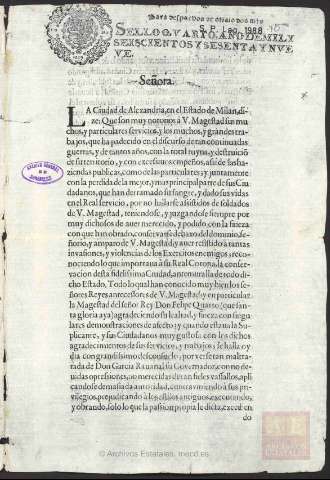 Para despachos de oficio dos mrs
S.P. Leg. 1988
SELLO QVARTO, AÑO DE MIL Y
SEISCIENTOS Y SESENTA Y NVE
VE.
Señora.
LA Ciudad de Alexandria, en el Estado de Milan, di-
ze: Que son muy notorios à V. Magestad sus mu-
chos, y particulares servicios, y los muchos, y grandes tra-
bajos, que ha padecido en el discurso de tan continuadas
guerras, y de tantos años, con la total ruyna, y destruici
de su territorio, y con excessivos empeños, assi de sus ha-
ziendas publicas, como de las particulares; y juntamente
con la perdida de la mejor, y mas principal parte de sus Ciu-
dadanos, que han derramado su sangre, y dado sus vidas
en el Real servicio, por no hallarse assistidos de soldados
de V. Magestad, teniendose, y juzgandose siempre por
muy dichosos de aver merecido, y podido, con la fineza
con que han obrado, conservarse debaxo del dominio, se
ñorio, y amparo de V. Magestad, y aver resistido à tantas
invasiones, y violencias de los Exercitos enemigos, reco-
nociendo lo que importava à su Real Corona, la conser-
vacion desta fidelissima Ciudad, antemuralla de todo di-
cho Estado. Todo lo qual han conocido muy bien los se-
ñores Reyes antecessores de V. Magestad, y en particular
la Magestad del señor Rey Don Felipe Quarto (que san-
ta gloria aya) agradeciendo su lealtad, y fineza con singu-
lares demonstraciones de afecto; y quando estava la Su-
plicante, y sus Ciudadanos muy gustosos con los dichos
agradecimientos de sus servicios, y trabajos, se halla oy
dia con grandissimo desconsuelo, por verse tan maltra-
tada de Don Garcia Ravanal su Governador, con no de-
vidas opressiones, no merecidas de tan fieles vassallos, apli-
candose demasiada autoridad, contraviniendo à sus pri-
vilegios, prejudicando à los estilos antiguos, executando,
y obrando, solo lo que la passion propia le dicta, exceden
do
ARCHIVO GENERAL
DE
SIMANCAS
ARCHIVOS
ESTATALES
© Archivos Estatales, mecd.es